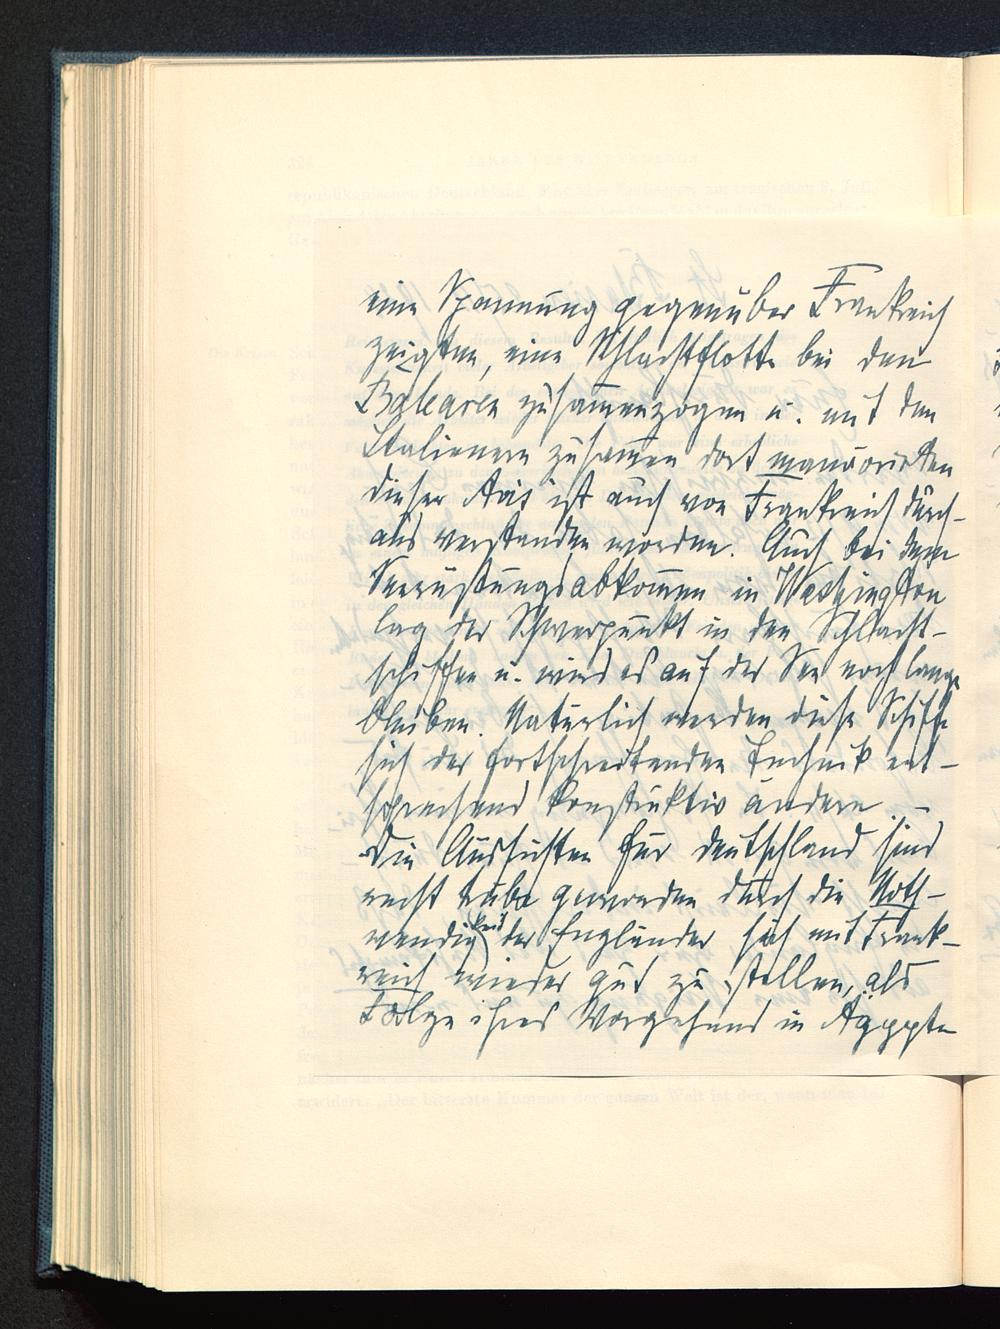 eine Spannung gegenüber Frankreich
zeigten, eine Schlachtflotte bei den
Balearen zusammenzogen u. mit den
Italienern zusammen dort manövrirten
dieser Avis ist auch von Frankreich durch-
aus verstanden worden. Auch bei dem
Seerüstungsabkommen in Washington
lag der Schwerpunkt in den Schlacht-
schiffen u. wird es auf der See noch lange
bleiben. Natürlich werden diese Schiffe
sich der fortschreitenden Technik ent-
sprechend konstruktiv ändern. –
Die Aussichten für Deutschland sind
recht trübe geworden durch die Noth-
wendigkeit der Engländer sich mit Frank-
reich wieder gut zu stellen, als
Folge ihres Vorgehens in Ägypten